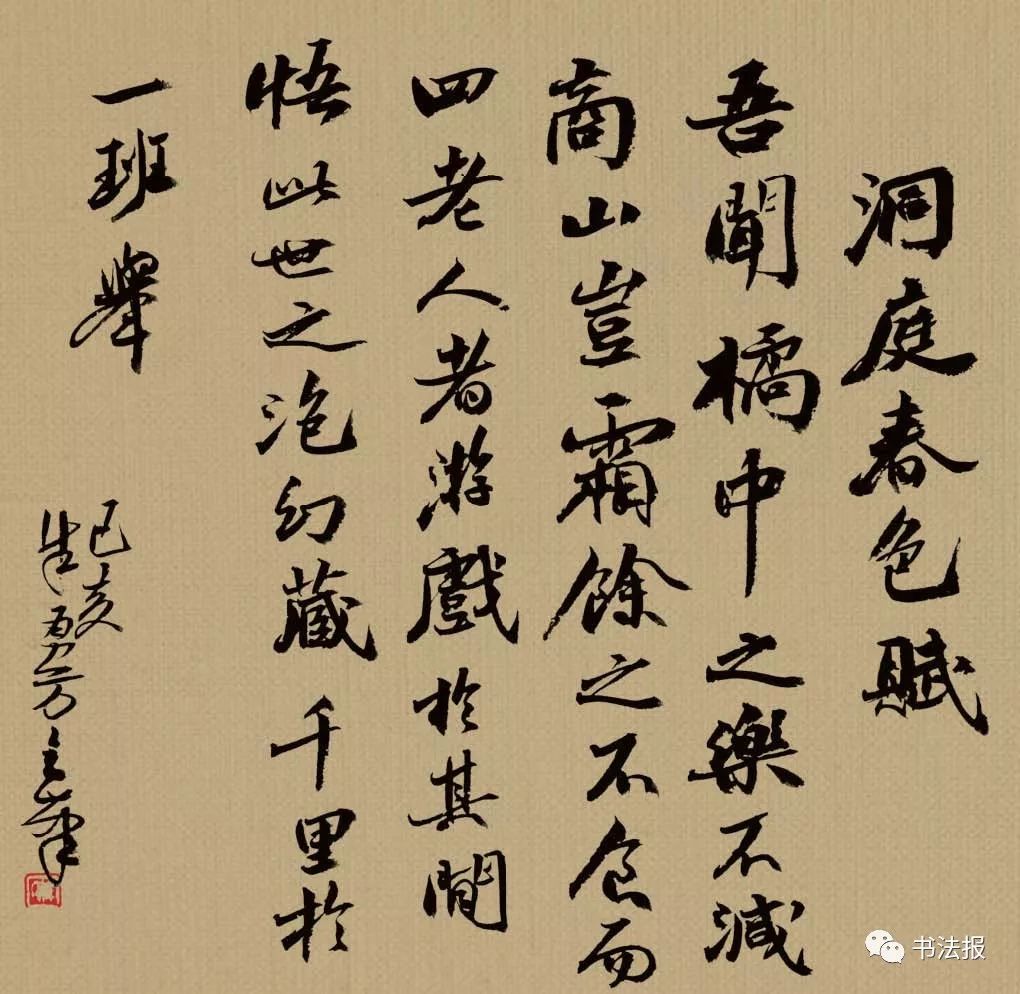 洞庭春色賦
吾聞橘中之樂不減
商山豈霜餘之不食而
四老人者游戲於其間
悟此世之泡幻藏千里於
一班舉
己亥
书法报